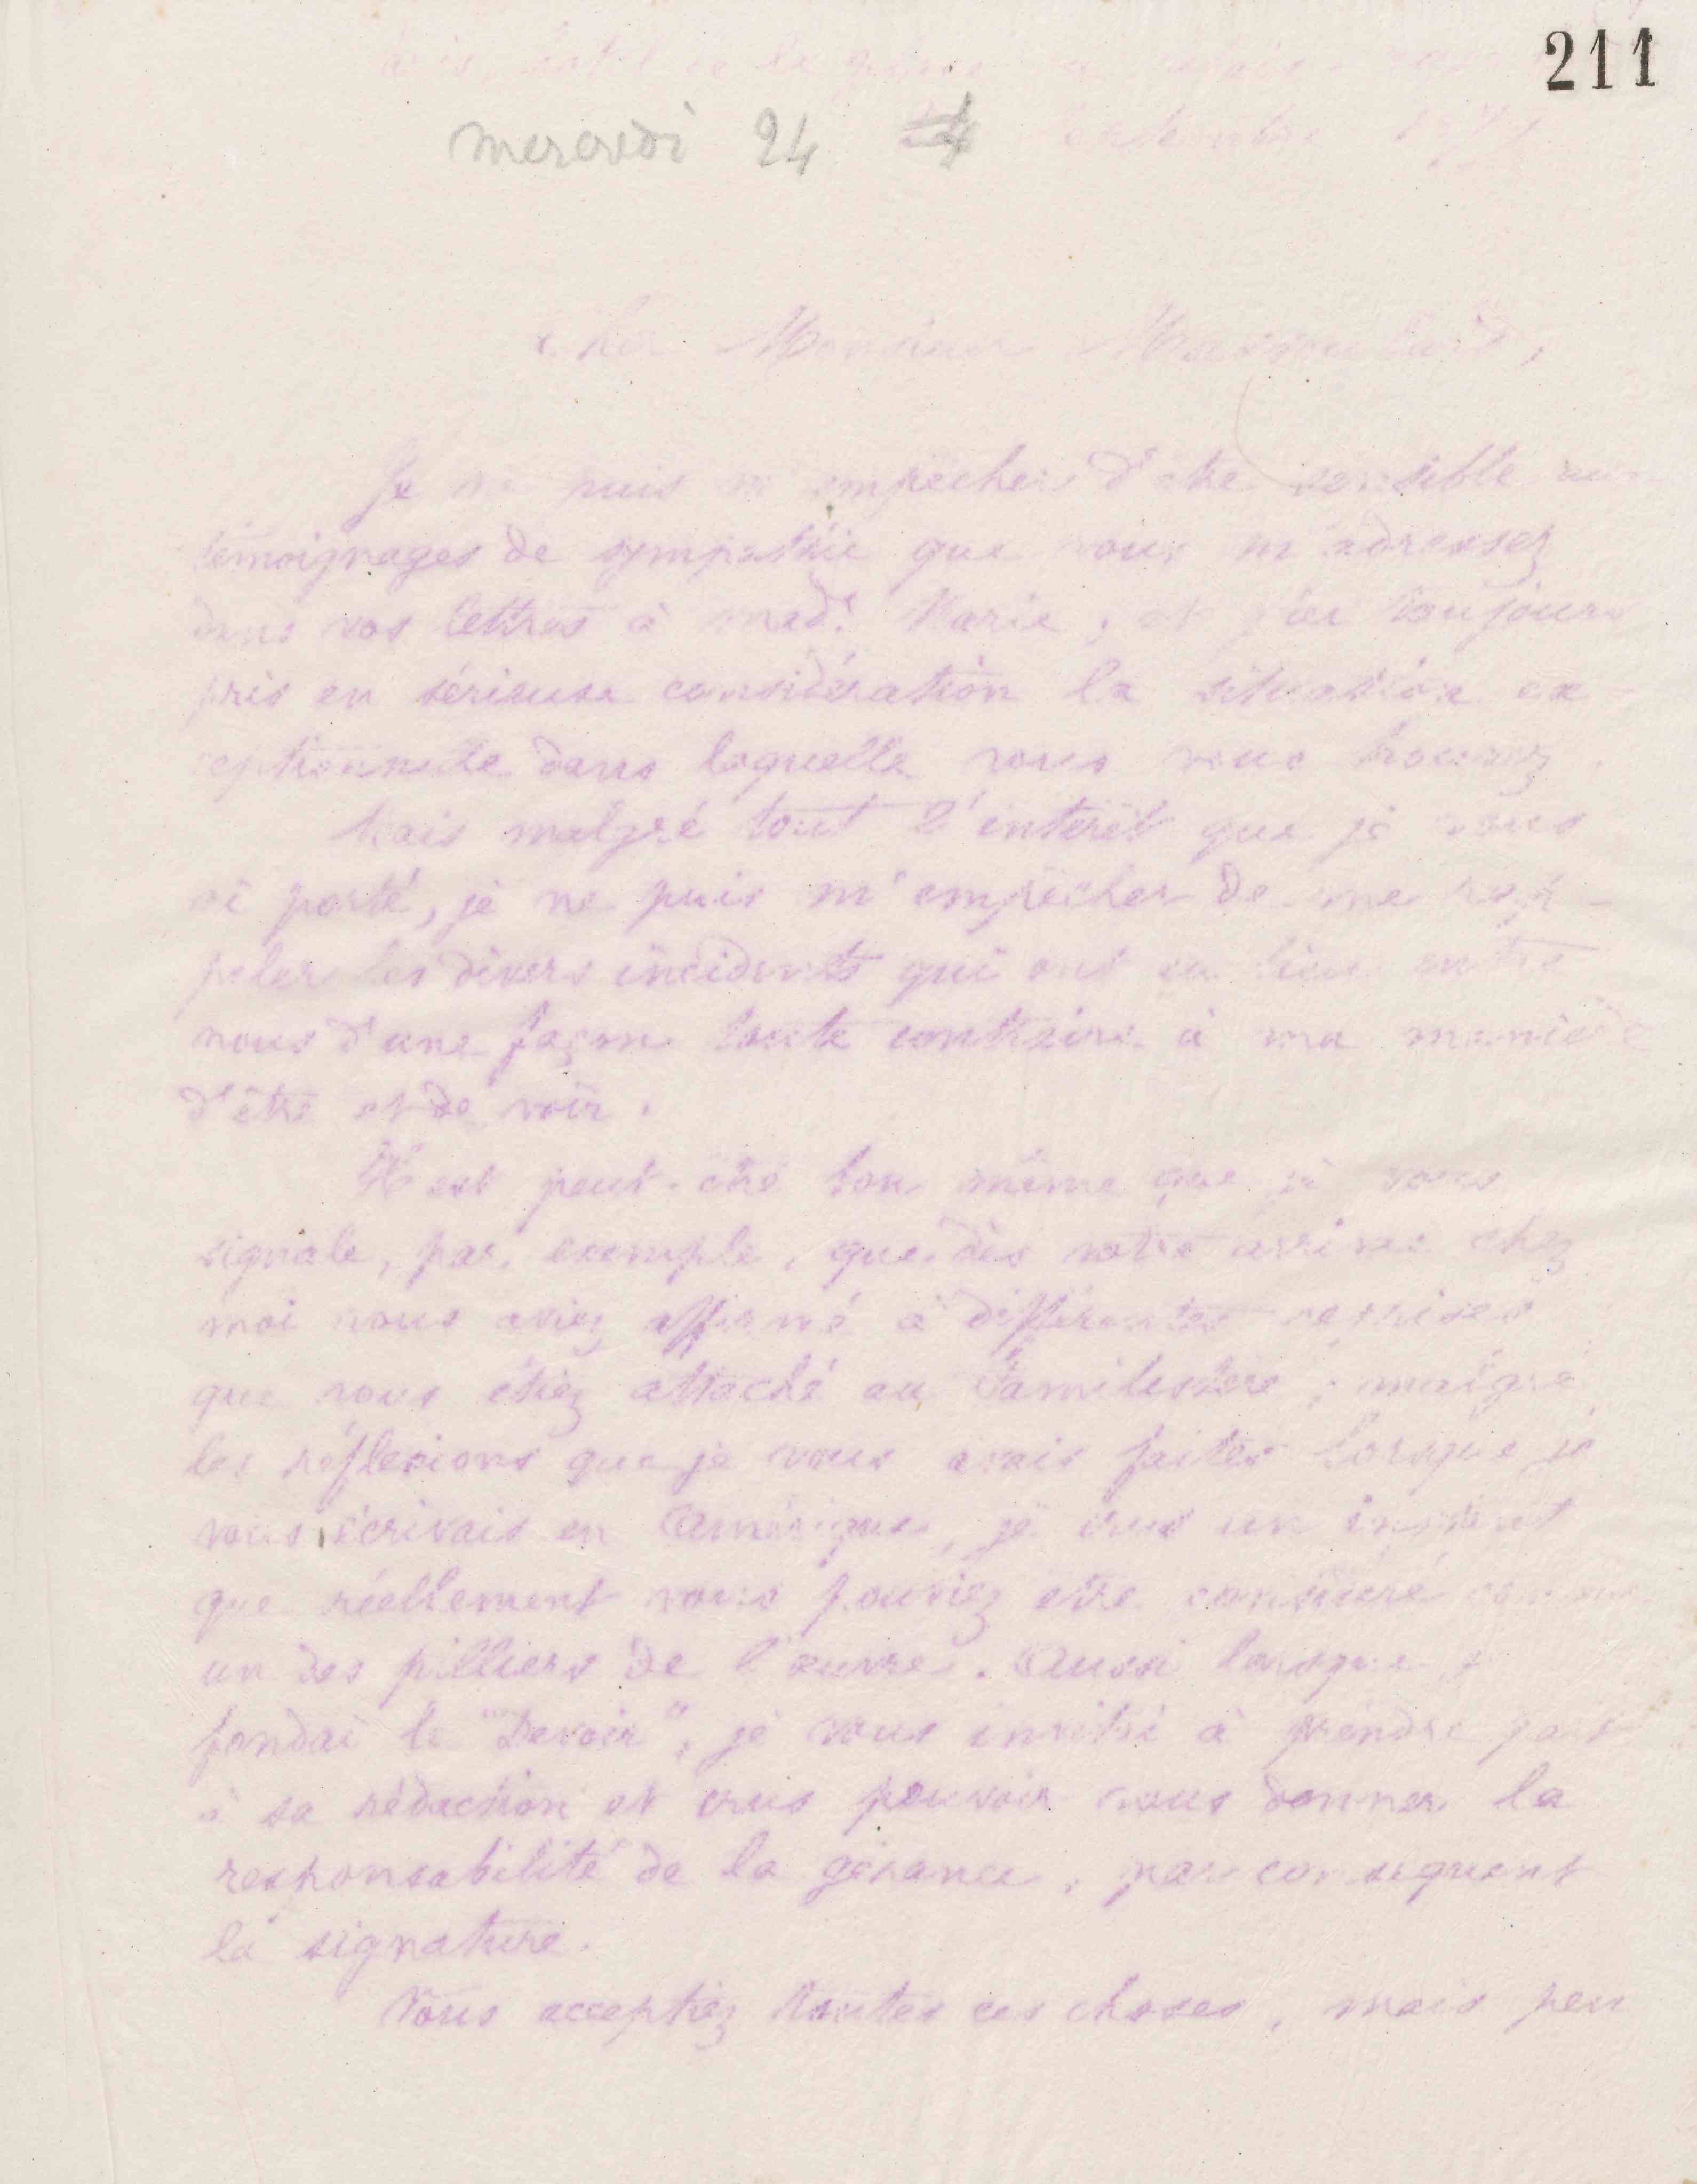 211
mercredi 24
Cher Monsieur Massoulard,
Je ne puis m'empêcher d'être sensible aux
témoignages de sympathie que vous m'adressez
dans vos lettres à mad.e Marie, et j'ai toujours
pris en sérieuse considération la situation ex-
ceptionnelle dans laquelle vous vous trouvez.
Mais malgré tout l'intérêt que je vous
ai porté, je ne puis m'empêcher de me rap-
peler les divers incidents qui ont eu lieu entre
nous d'une façon toute contraire à ma manière
d'être et de voir.
Il est peut-être bon même que je vous
signale, par exemple, que dès votre arrivée chez
moi vous aviez affirmé à différentes reprises
que vous étiez attaché au Familistère ; malgré
les réflexions que je vous avais faites lorsque je
vous écrivais en Amérique, je crus un instant
que réellement vous pouviez être considéré comme
un des pilliers de l'œuvre. Aussi lorsque je
fondai le "Devoir", je vous invitai à prendre part
à sa rédaction et crus pouvoir vous donner la
responsabilité de la gérance, par conséquent
la signature.
Vous acceptiez toutes ces choses, mais peu